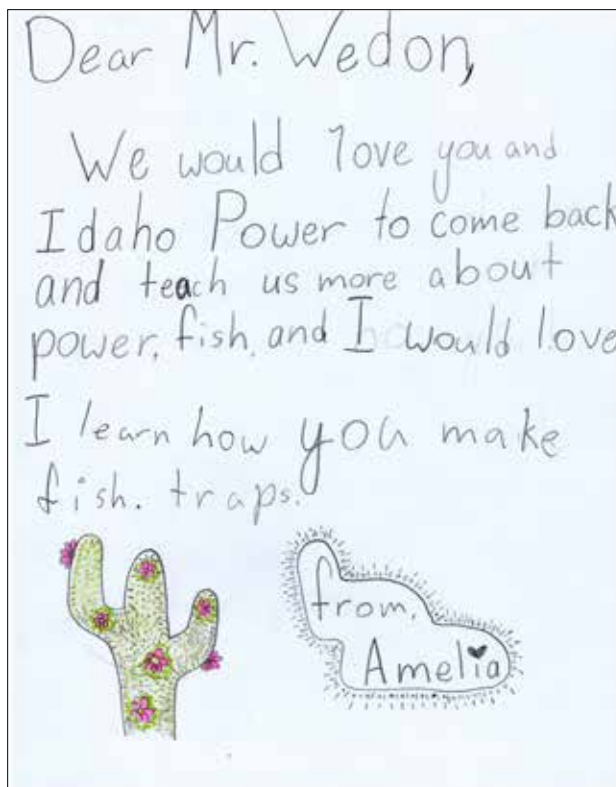 Dear Mr. Wedon,
We would love you and
Idaho Power to come back
and teach us more about
power, fish, and I would love
I learn how you make
fish. traps.
from,
Amelia